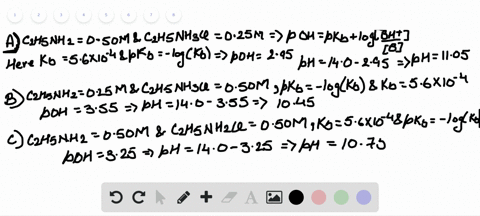 A) C2H5NH2 = 0.50M & C2H5NH3Cl = 0.25M => pOH = pKb + log [BH+]/[B]
Here Kb = 5.6X10-4 & pKb = -log(Kb) => pOH = 2.95 pH = 14.0 - 2.95 => pH = 11.05
B) C2H5NH2 = 0.25M & C2H5NH3Cl = 0.50M, pKb = -log(Kb) & Kb = 5.6X10-4
pOH = 3.55 => pH = 14.0 - 3.55 => 10.45
C) C2H5NH2 = 0.50M & C2H5NH3Cl = 0.50M, Kb = 5.6X10-4 & pKb = -log(Kb
pOH = 3.25 => pH = 14.0 - 3.25 => pH = 10.75